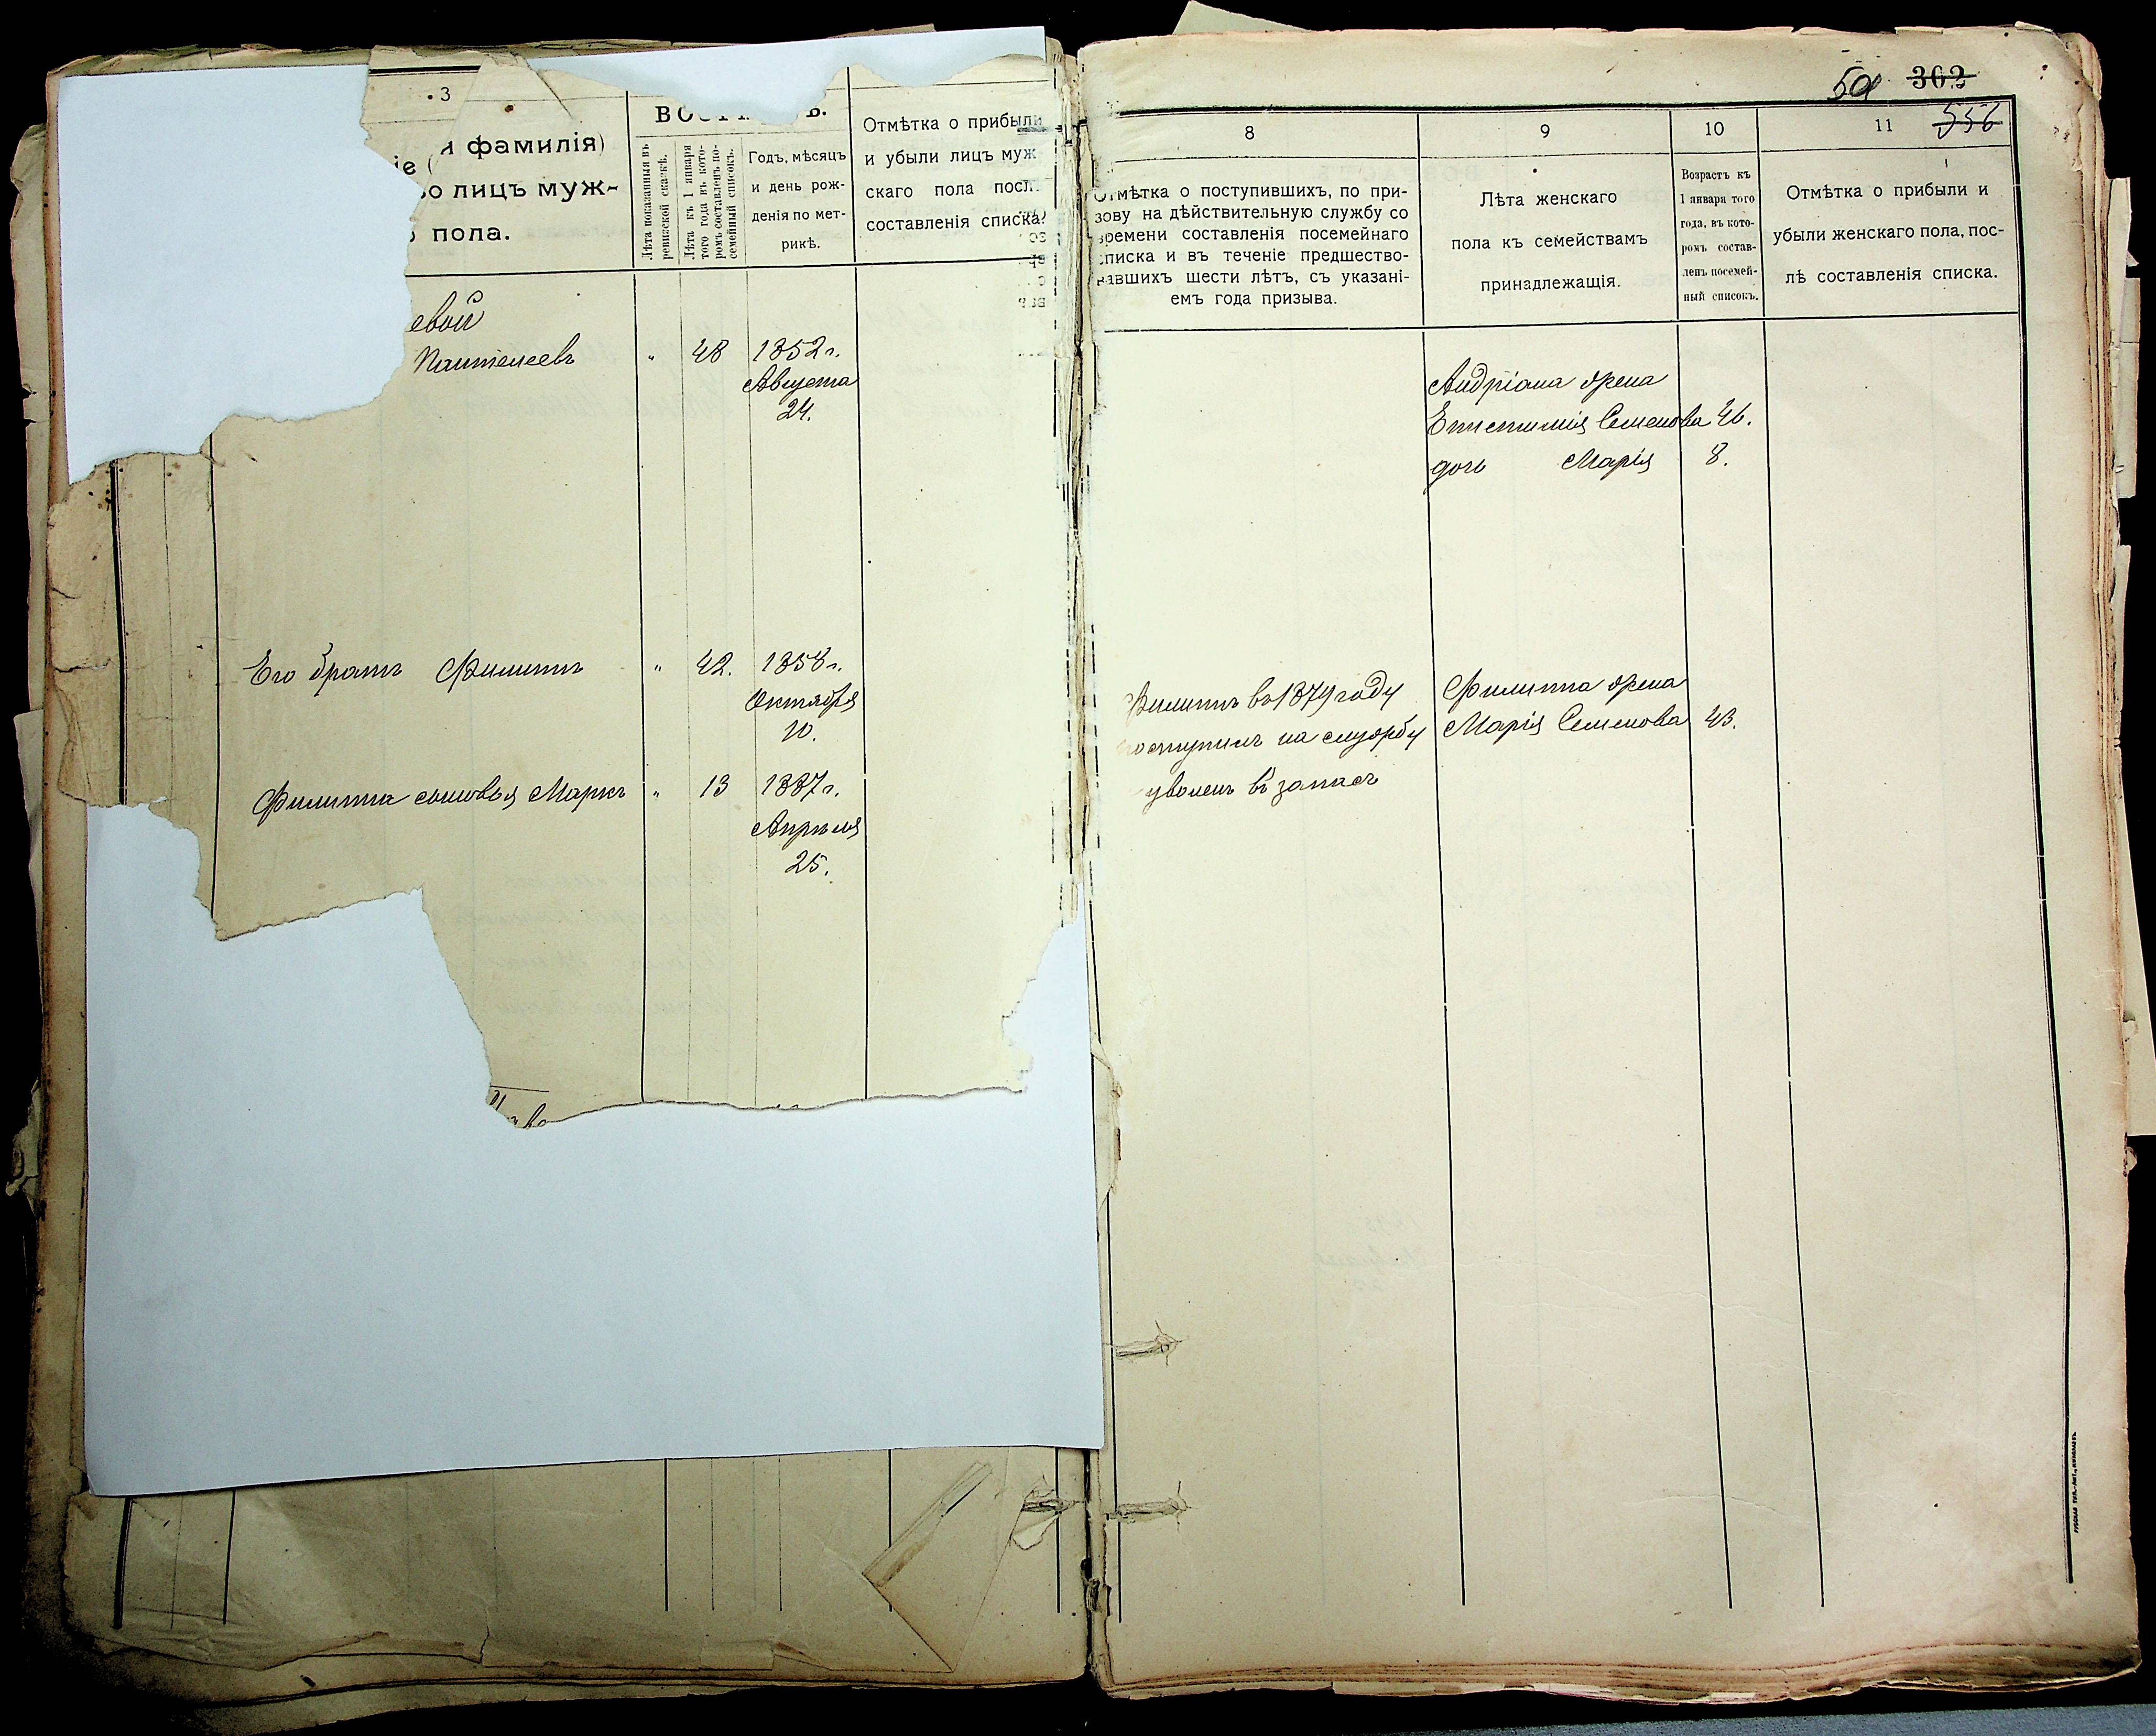 3
я фамилія)
іе (
о лицъ муж-
пола.
Лѣта показанныя въ
ревизской сказкѣ.
Лѣта къ 1 января
того года въ кото-
ромъ составленъ по-
семейный списокъ.
Годъ, мѣсяцъ
и день рож-
денія по мет-
рикѣ.
Отмѣтка о прибыли
и убыли лицъ муж
скаго пола посл
составленія списка.
евой
Пантелеевъ " 48 1852 г.
Августа
24.
Его братъ Филиппъ " 42. 1858 г.
Октября
10.
Филиппа сыновья Маркъ " 13 1887 г.
Апрѣля
25.
302
556
8
9
10
11
Отмѣтка о поступившихъ, по при-
зову на дѣйствительную службу со
времени составленія посемейнаго
списка и въ теченіе предшество-
вавшихъ шести лѣтъ, съ указані-
емъ года призыва.
Лѣта женскаго
пола къ семействамъ
принадлежащія.
Возрастъ къ
1 января того
года, въ кото-
ромъ состав-
ленъ посемей-
ный списокъ.
Отмѣтка о прибыли и
убыли женскаго пола, пос-
лѣ составленія списка.
Андріана жена
Епистимія Семенова 46.
дочь Марія 8.
Филиппъ въ 1879 году
поступилъ на службу
уволенъ въ запасъ
Филиппа жена
Марія Семенова 43.